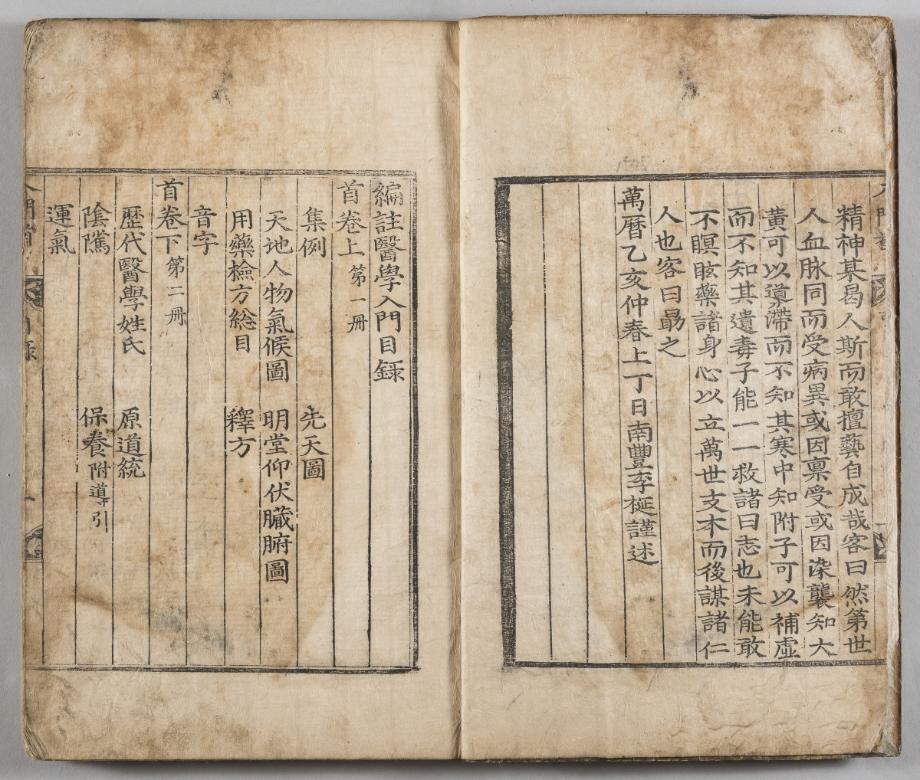 精神某曷人斯而敢擅藝自成哉客曰然第世
人血脉同而受病異或因稟受或因染襲知大
黃可以導滯而不知其寒中知附子可以補虛
而不知其遺毒子能一一救諸曰志也未能敢
不瞑眩藥諸身心以立萬世支本而後謀諸仁
人也客曰勗之
萬曆乙亥仲春上丁日南豐李梴謹述
編註醫學入門目録
首卷上 第一冊
集例 先天圖
天地人物氣候圖 明堂仰伏臟腑圖
用藥檢方総目 釋方
音字
首卷下 第二冊
歷代醫學姓氏 原道統
陰隲 保養 附導引
運氣